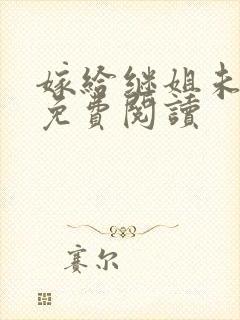 嫁給継姐未
免費閱讀
赛尔